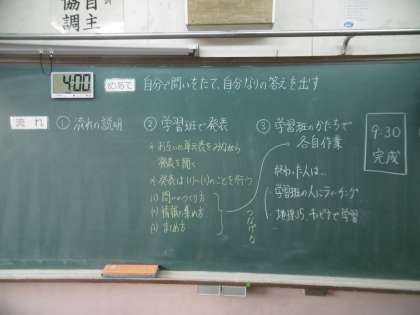 自主
協調
4:00
めあて 自分で問いをたて、自分なりの答えを出す
流れ
① 流れの説明
② 学習班で発表
・お互いの単元表をみながら
発表を聞く
・発表は(1)~(3)のことを行う
(1) 問いのつくり方
(2) 情報の集め方
(3) まとめ方
つなげる
③ 学習班のかたちで
各自作業
終わった人は…
学習班の人にティーチング
9:30
完成